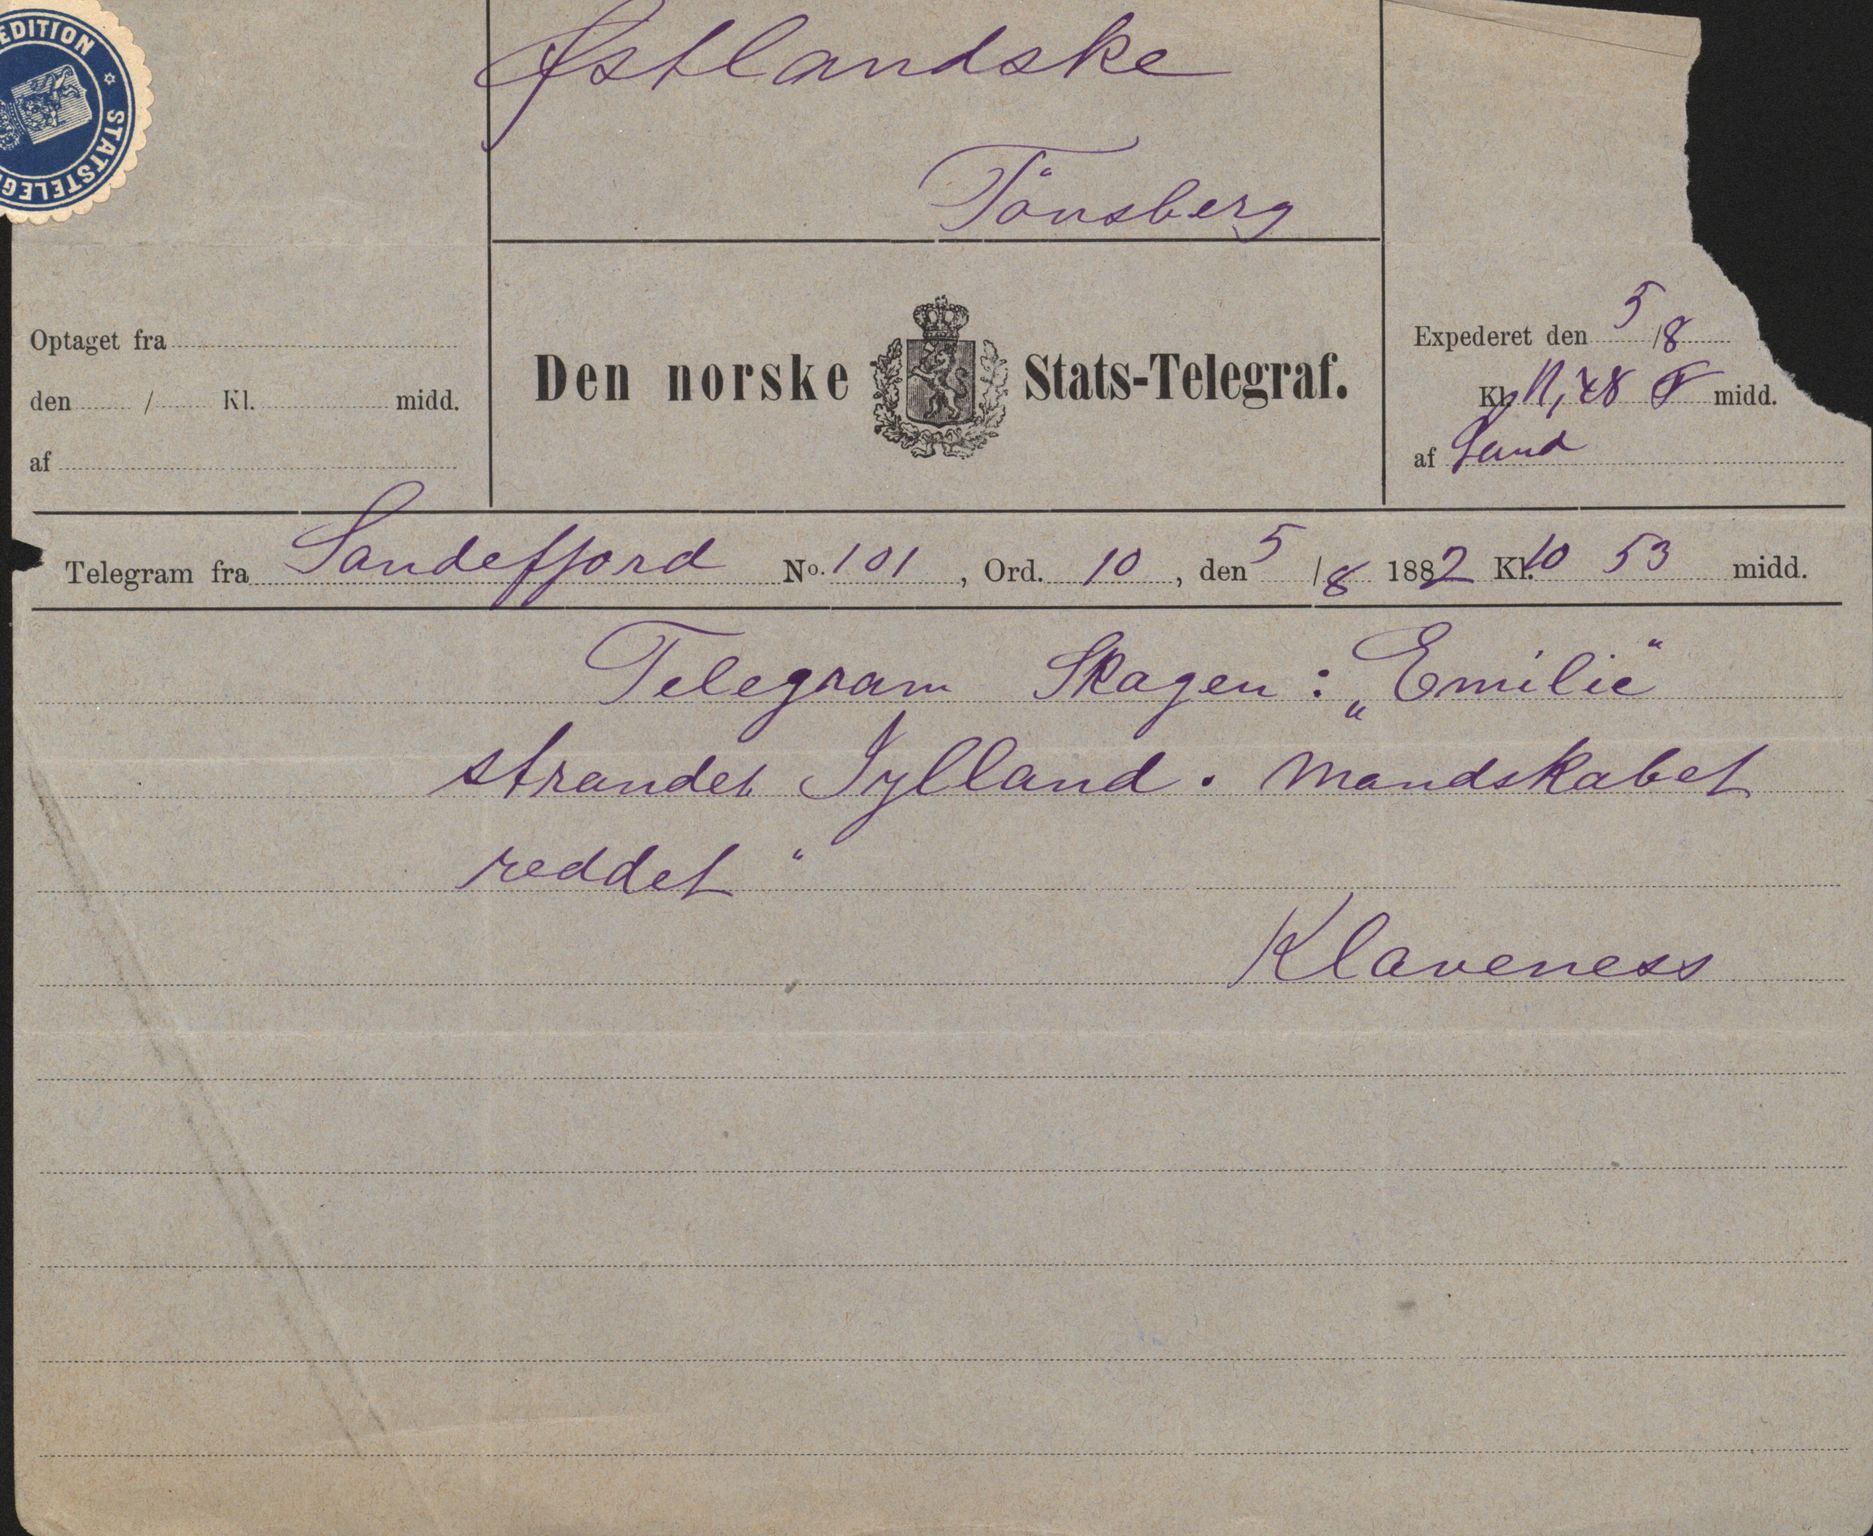 EDITION * STATSTELEG
Østlandske
Tönsberg
Optaget fra
den / Kl. midd.
af
Den norske Stats-Telegraf.
Expederet den 5/8
Kl. 11,48 F midd.
af Lund
Telegram fra Sandefjord No. 101, Ord. 10, den 5/8 1882 Kl. 10 53 midd.
Telegram Skagen: „Emilie“
strandet Jylland. Mandskabet
reddet“
Klaveness